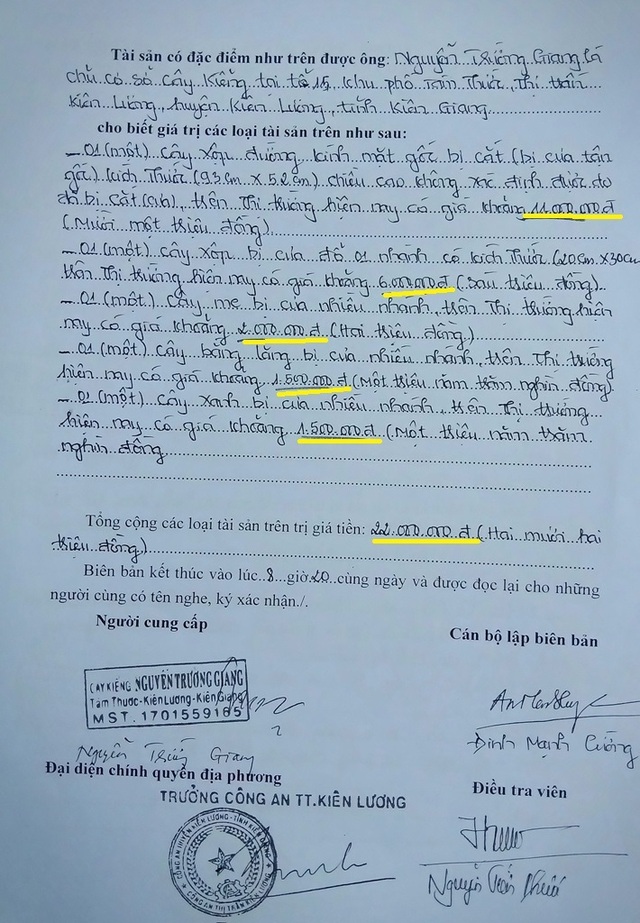 Tài sản có đặc điểm như trên được ông: Nguyễn Trường Giang là
chủ cơ sở cây kiểng tại tổ 15, khu phố Tám Thước, Thị trấn
Kiên Lương, huyện Kiên Lương, tỉnh Kiên Giang
cho biết giá trị các loại tài sản trên như sau:
- 01 (một) cây xộp đường kính mặt gốc bị cắt (bị cưa tận
gốc) kích thước (93cm x 52cm) chiều cao không xác định được do
đã bị cắt (cưa), trên thị trường hiện nay có giá khoảng 11.000.000đ
(Mười một triệu đồng).
- 01 (một) cây xộp bị cưa đổ 01 nhánh có kích thước (20cm x 30cm
trên thị trường hiện nay có giá khoảng 6.000.000đ (Sáu triệu đồng).
- 01 (một) cây me bị cưa nhiều nhánh, trên thị trường hiện
nay có giá khoảng 2.000.000đ (Hai triệu đồng.)
- 01 (một) cây bằng lăng bị cưa nhiều nhánh, trên thị trường
hiện nay có giá khoảng 1.500.000đ (Một triệu năm trăm nghìn đồng)
- 01 (một) cây xanh bị cưa nhiều nhánh, trên thị trường
hiện nay có giá khoảng 1.500.000đ (Một triệu năm trăm
nghìn đồng
Tổng cộng các loại tài sản trên trị giá tiền: 22.000.000đ (Hai mươi hai
triệu đồng)
Biên bản kết thúc vào lúc 8 giờ 20 cùng ngày và được đọc lại cho những
người cùng có tên nghe, ký xác nhận./.
Người cung cấp
Cán bộ lập biên bản
CÂY KIỂNG NGUYỄN TRƯỜNG GIANG
Tám Thước-Kiên Lương-Kiên Giang
MST. 1701559165
Nguyễn Trường Giang
Đinh Mạnh Cường
Đại diện chính quyền địa phương
Điều tra viên
TRƯỞNG CÔNG AN TT.KIÊN LƯƠNG
CÔNG AN HUYỆN KIÊN LƯƠNG-TỈNH KIÊN GIANG
CÔNG AN THỊ TRẤN KIÊN LƯƠNG
Nguyễn